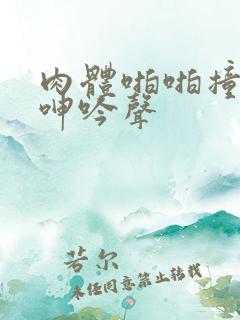 肉體啪啪撞
呻吟聲
若尔
未经同意禁止转载